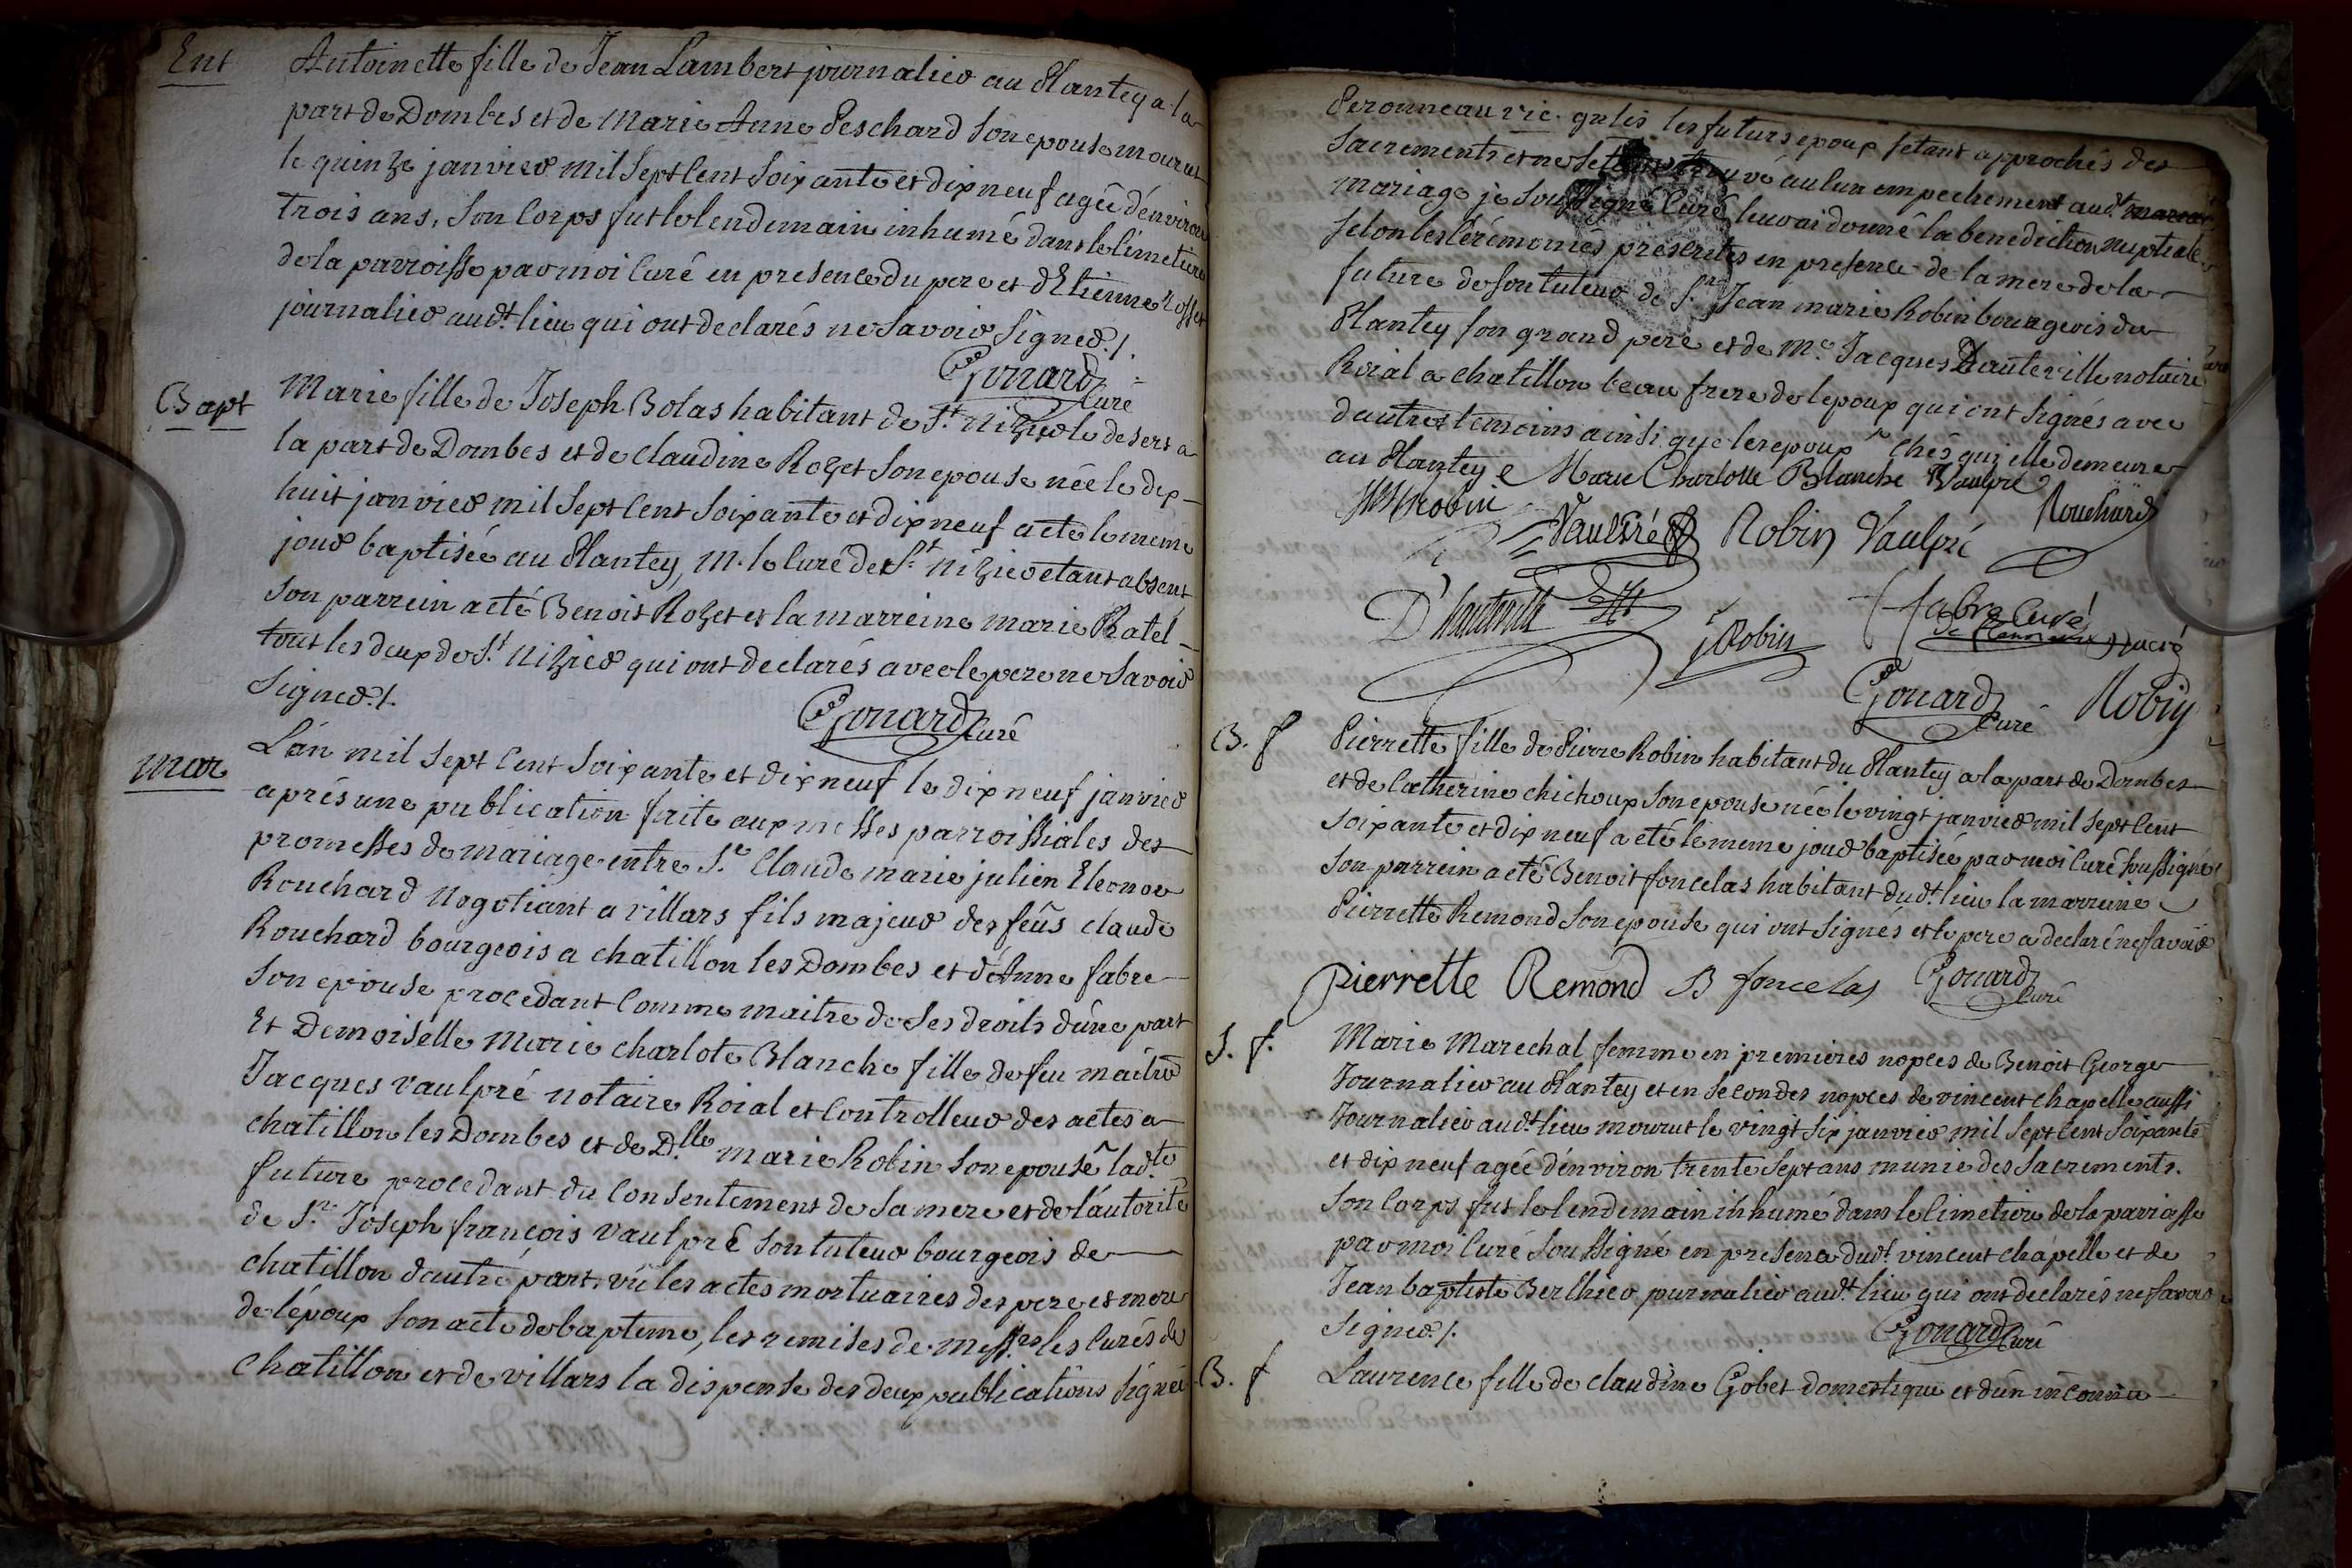 Ent
Antoinette fille de Jean Lambert journalier au Plantey a la
part de Dombes et de Marie Anne Peschard son epouse mourut
le quinze janvier mil sept cent soixante et dix neuf agée d'environ
trois ans, son corps fut le lendemain inhumé dans le cimetiere
de la parroisse par moi curé en presence du pere et d'Etienne Rosset
journalier aud.t lieu qui ont declarés ne savoir signer./.
Gonard curé
Bapt
Marie fille de Joseph Bolas habitant de S.t Nizier le desert a
la part de Dombes et de Claudine Rozet son epouse née le dix
huit janvier mil sept cent soixante et dix neuf a eté le meme
jour baptisée au Plantey, M. le curé de S.t Nizier etant absent
son parrein a eté Benoit Rozet et la marreine marie Ratel
tout les deux de S.t Nizier qui ont declarés avec le pere ne savoir
signer./.
Gonard curé
Mar
L'an mil sept cent soixante et dix neuf le dix neuf janvier
aprés une publication faite aux messes parroissiales des
promesses de mariage entre S.r Claude marie julien Eleonor
Rouchard Negotiant a villars fils majeur des feûs claude
Rouchard bourgeois a chatillon les Dombes et d'Anne fabre
son epouse procedant comme maitre de ses droits d'une part
Et Demoiselle Marie charlote Blanche fille de feu maître
Jacques vaulpré notaire Roial et controlleur des actes a
chatillon les Dombes et de D.lle marie Robin son epouse lad.te
future procedant du consentement de sa mere et de l'autorité
de S.r Joseph françois vaulpré son tuteur bourgeois de
chatillon d'autre part, vû les actes mortuaires des pere et mere
de l'époux son acte de bapteme, les remises de mess.rs les curés de
chatillon et de villars la dispense des deux publications signée
Peronneau vic. gnl is les futurs epoux s'etant approchés des
sacrements et ne s'etant trouvé aucun empechement aud.t
mariage je soussigné curé leur ai donné la benediction nuptiale
selon les cérémonies prescrites en presence de la mere de la
future de son tuteur de S.r Jean marie Robin bourgeois du
Plantey son grand pere et de M.e Jacques Dhauteville notaire
Roial a chatillon beau frere de l'epoux qui ont signés avec
d'autres temoins ainsi que les epoux chés qui elle demeure
au Plantey Marie Charlotte Blanche Vaulpré
Robin Rouchard
Vaulpré Robin Vaulpré
D'hauteville jRobin fabre curé
Gonard curé Robin
B. f
Pierrette fille de Pierre Robin habitant du Plantey a la part de Dombes
et de Catherine chichoux son epouse née le vingt janvier mil sept cent
soixante et dix neuf a eté le meme jour baptisée par moi curé soussigné
son parrein a eté Benoit foncelas habitant dud.t lieu la marreine
Pierrette Remond son epouse qui ont signés et le pere a declaré ne savoir
pierrette Remond B foncelas Gonard curé
S. f.
Marie Marechal femme en premieres nopces de Benoit George
Journalier au Plantey et en secondes nopces de vincent chapelle aussi
Journalier aud.t lieu mourut le vingt six janvier mil sept cent soixante
et dix neuf agée d'environ trente sept ans munie des sacrements.
son corps fut le lendemain inhumé dans le cimetiere de la parroisse
par moi curé soussigné en presence dud.t vincent chapelle et de
Jean baptiste Berlhier journalier aud.t lieu qui ont declarés ne savoir
signer./.
Gonard curé
B. f
Laurence fille de claudine Gobet domestique et d'un inconnu